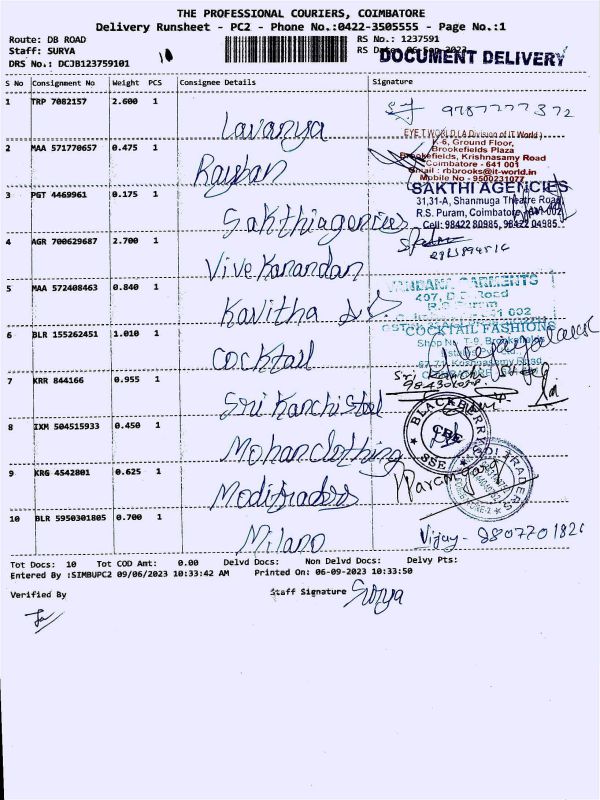 THE PROFESSIONAL COURIERS, COIMBATORE
Delivery Runsheet - PC2 - Phone No.:0422-3505555 - Page No.:1
Route: DB ROAD RS No.: 1237591
Staff: SURYA RS Date: 06-Sep-2023
DOCUMENT DELIVERY
DRS No.: DCJB123759101 10
S No Consignment No Weight PCS Consignee Details Signature
1 TRP 7082157 2.600 1 Lavanya
2 MAA 571770657 0.475 1 Rayban
EYE T WORLD (A Division of IT World)
K-6, Ground Floor,
Brookefields Plaza
Brookefields, Krishnasamy Road
Coimbatore - 641 001
Email : rbbrooks@it-world.in
Mobile No - 9500231077
3 PGT 4469961 0.175 1 Sakthiagencies
SAKTHI AGENCIES
31,31-A, Shanmuga Theatre Road
R.S. Puram, Coimbatore
Cell: 98422 80985, 98422 04985
4 AGR 700629687 2.700 1 Vivekanandan
5 MAA 572408463 0.840 1 Kavitha
VANDANA GARMENTS
407, D.B. Road
R.S. Puram
6 BLR 155262451 1.010 1 cocktail
COCKTAIL FASHIONS
Shop No. T-9, Brookefields
67-71, Krishnasamy Road
7 KRR 844166 0.955 1 Sri Kanchi Steel
Sri Kanchi Steel
8 IXM 504515933 0.450 1 Mohanclothing
BLACKBERRY
CBE
9 KRG 4542801 0.625 1 Moditraders
MODI TRADERS
10 BLR 5950301805 0.700 1 Milano Vijay -
Tot Docs: 10 Tot COD Amt: 0.00 Delvd Docs: Non Delvd Docs: Delvy Pts:
Entered By :SIMBUPC2 09/06/2023 10:33:42 AM Printed On: 06-09-2023 10:33:50
Verified By Staff Signature Surya